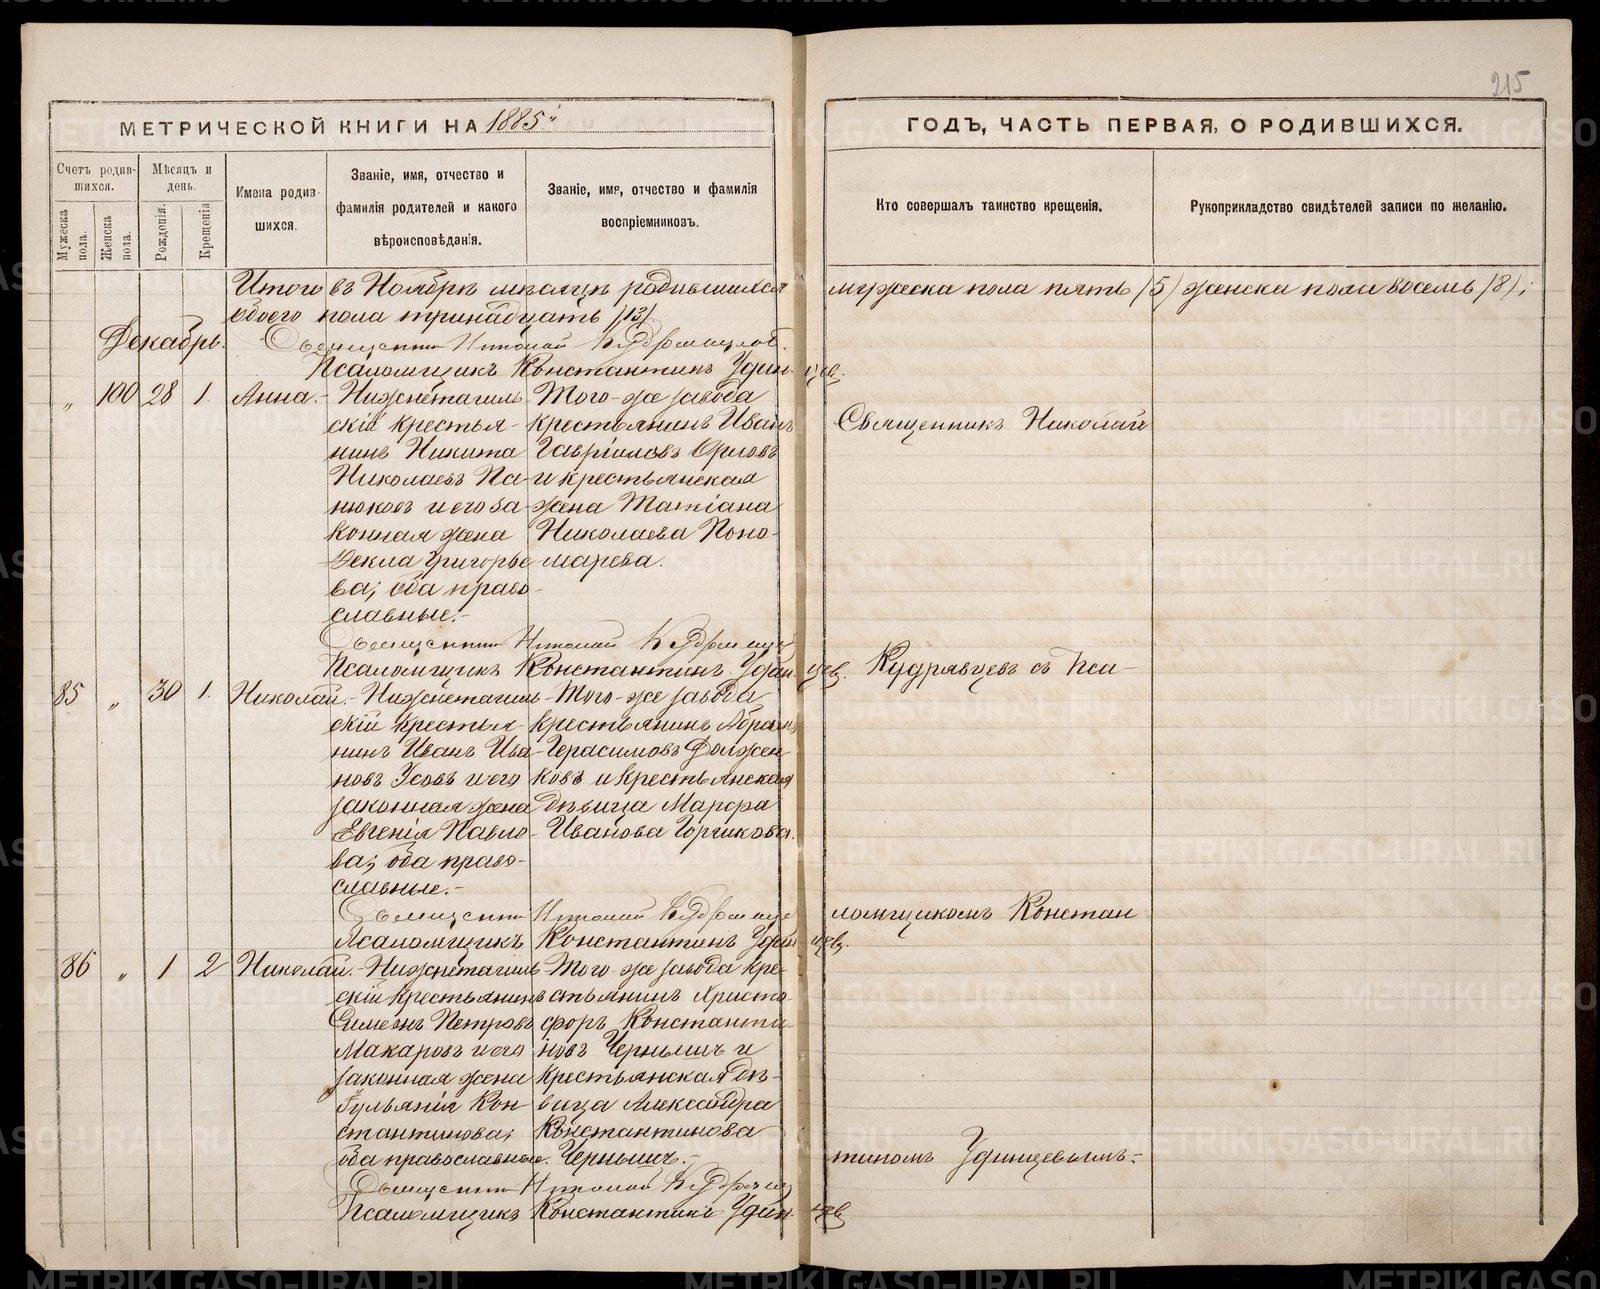 215
МЕТРИЧЕСКОЙ КНИГИ НА 1885
ГОДЪ, ЧАСТЬ ПЕРВАЯ, О РОДИВШИХСЯ.
Счетъ родившихся.
Мужеска пола.
Женска пола.
Мѣсяцъ и день.
Рожденія.
Крещенія
Имена родившихся.
Званіе, имя, отчество и фамилія родителей и какого вѣроисповѣданія.
Званіе, имя, отчество и фамилія воспріемниковъ.
Кто совершалъ таинство крещенія.
Рукоприкладство свидѣтелей записи по желанію.
Итого въ Ноябрѣ мѣсяцѣ родившихся мужеска пола пять (5) женска пола восемь (8),
обоего пола тринадцать (13)
Священникъ Николай Кудрявцевъ.
Декабрь.
Псаломщикъ Константинъ Удинцев.
„ 100 28 1. Анна.-
Нижнетагиль-
скій крестья-
нинъ Никита
Николаевъ Па-
нюковъ и его за-
конная жена
Ѳекла Григорье-
ва; оба право-
славные.-
Того-же завода
крестьянинъ Иванъ
Гавріиловъ Орловъ
и крестьянская
жена Татіана
Николаева Поно-
марева.
Священникъ Николай Кудрявцев
Псаломщикъ Константинъ Удинцев.
85 „ 30 1. Николай.-
Нижнетагиль-
скій крестья-
нинъ Иванъ Ива-
новъ Усовъ и его
законная жена
Евгенія Павло-
ва; оба право-
славные.-
Того-же завода
крестьянинъ Абрамъ
Герасимовъ Должен-
ковъ и крестьянская
дѣвица Марѳа
Иванова Горшкова.
Священникъ Николай Кудрявцев
Псаломщикъ Константинъ Удинцев.
86 „ 1 2 Николай.-
Нижнетагиль-
скій крестьянинъ
Симеонъ Петровъ
Макаровъ и его
законная жена
Іульянія Кон-
стантинова;
оба православные.
Того-же завода кре-
стьянинъ Христо-
форъ Константи-
новъ Чернышъ и
крестьянская дѣ-
вица Александра
Константинова
Чернышъ.-
Священникъ Николай Кудрявцев
Псаломщикъ Константинъ Удинцев
Священникъ Николай
Кудрявцевъ съ Пса-
ломщикомъ Констан
тиномъ Удинцевымъ.-
METRIKI.GASO-URAL.RU